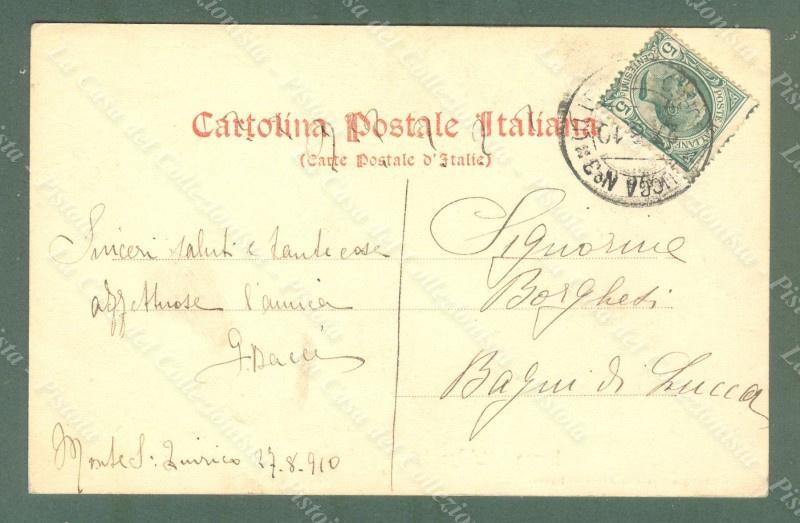 Cartolina Postale Italiana
(Carte Postale d'Italie)
POSTE ITALIANE
CENTESIMI 5
5
LUCCA Nº 3
Sinceri saluti e tante cose
affettuose l'amica
G. Bacci
Monte S: Quirico 27.8.910
Signorine
Borghesi
Bagni di Lucca
La Casa del Collezionista - Pistoia